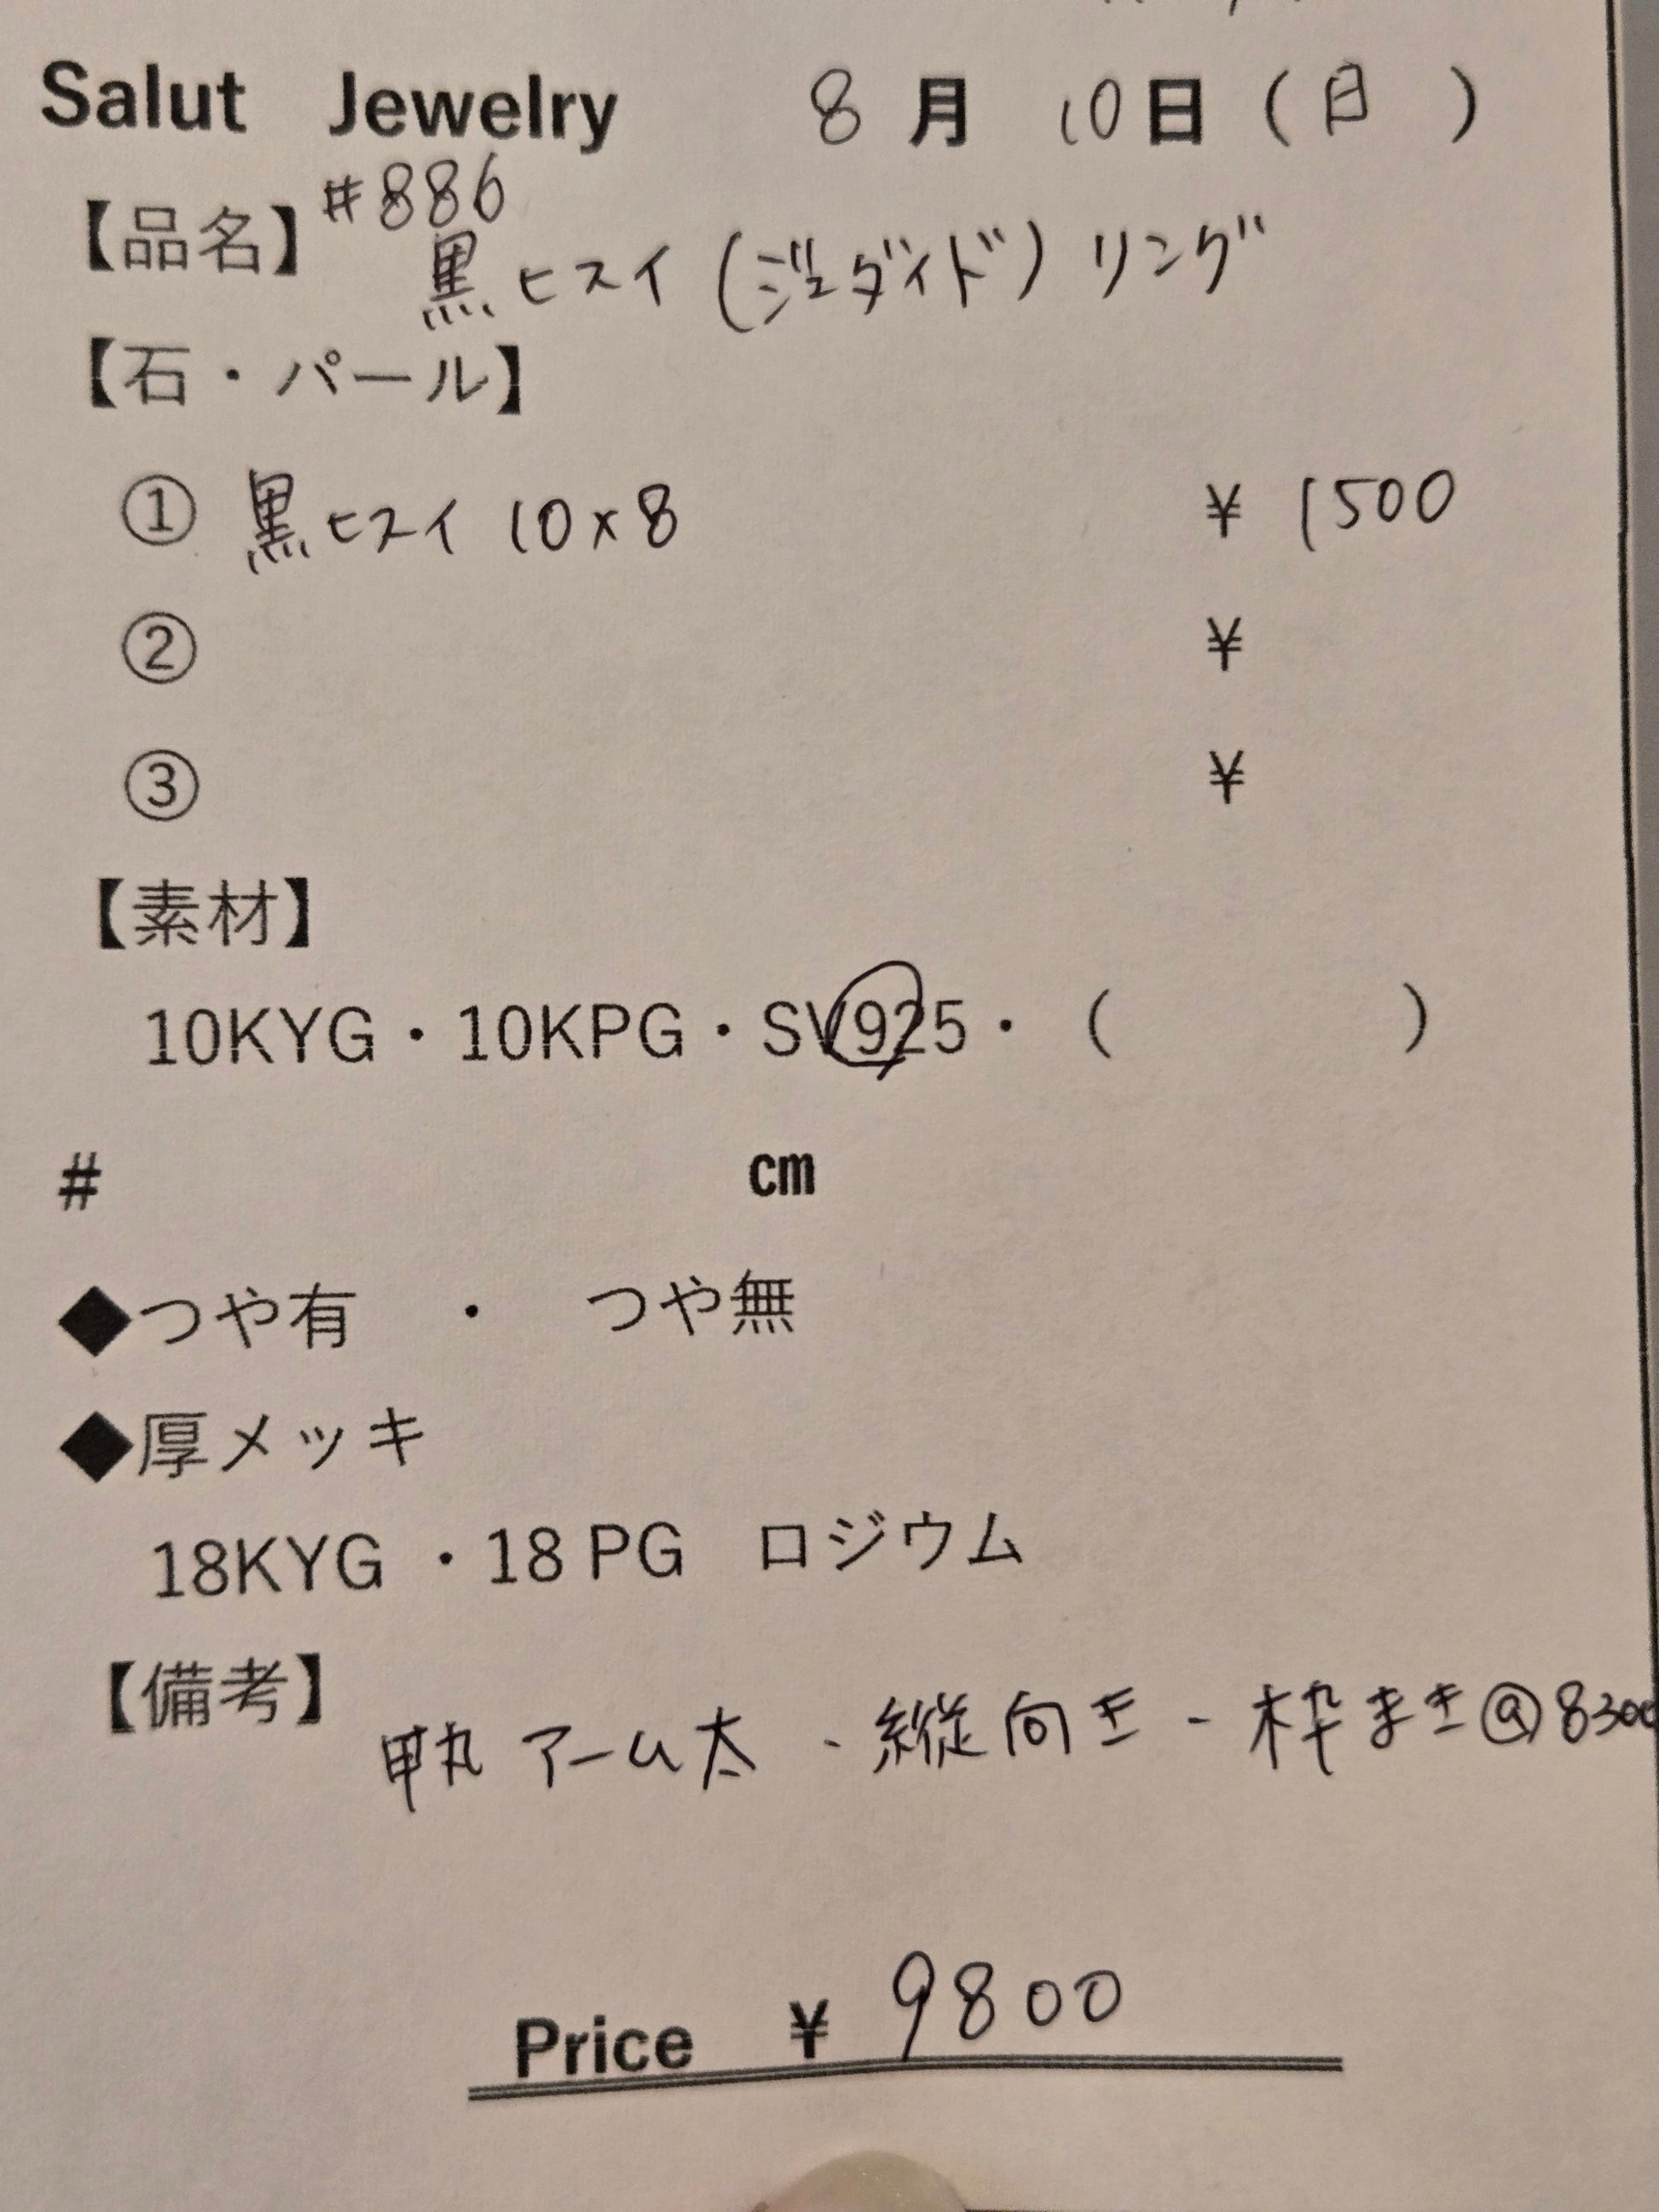 Salut Jewelry 8月10日(日)
【品名】#886
黒ヒスイ(ジェダイド)リング
【石・パール】
① 黒ヒスイ 10×8 ¥1500
② ¥
③ ¥
【素材】
10KYG・10KPG・SV925・( )
# cm
◆つや有 ・ つや無
◆厚メッキ
18KYG ・18 PG ロジウム
【備考】甲丸 アーム太 - 縦向き - 枠まき@8300
Price ¥ 9800